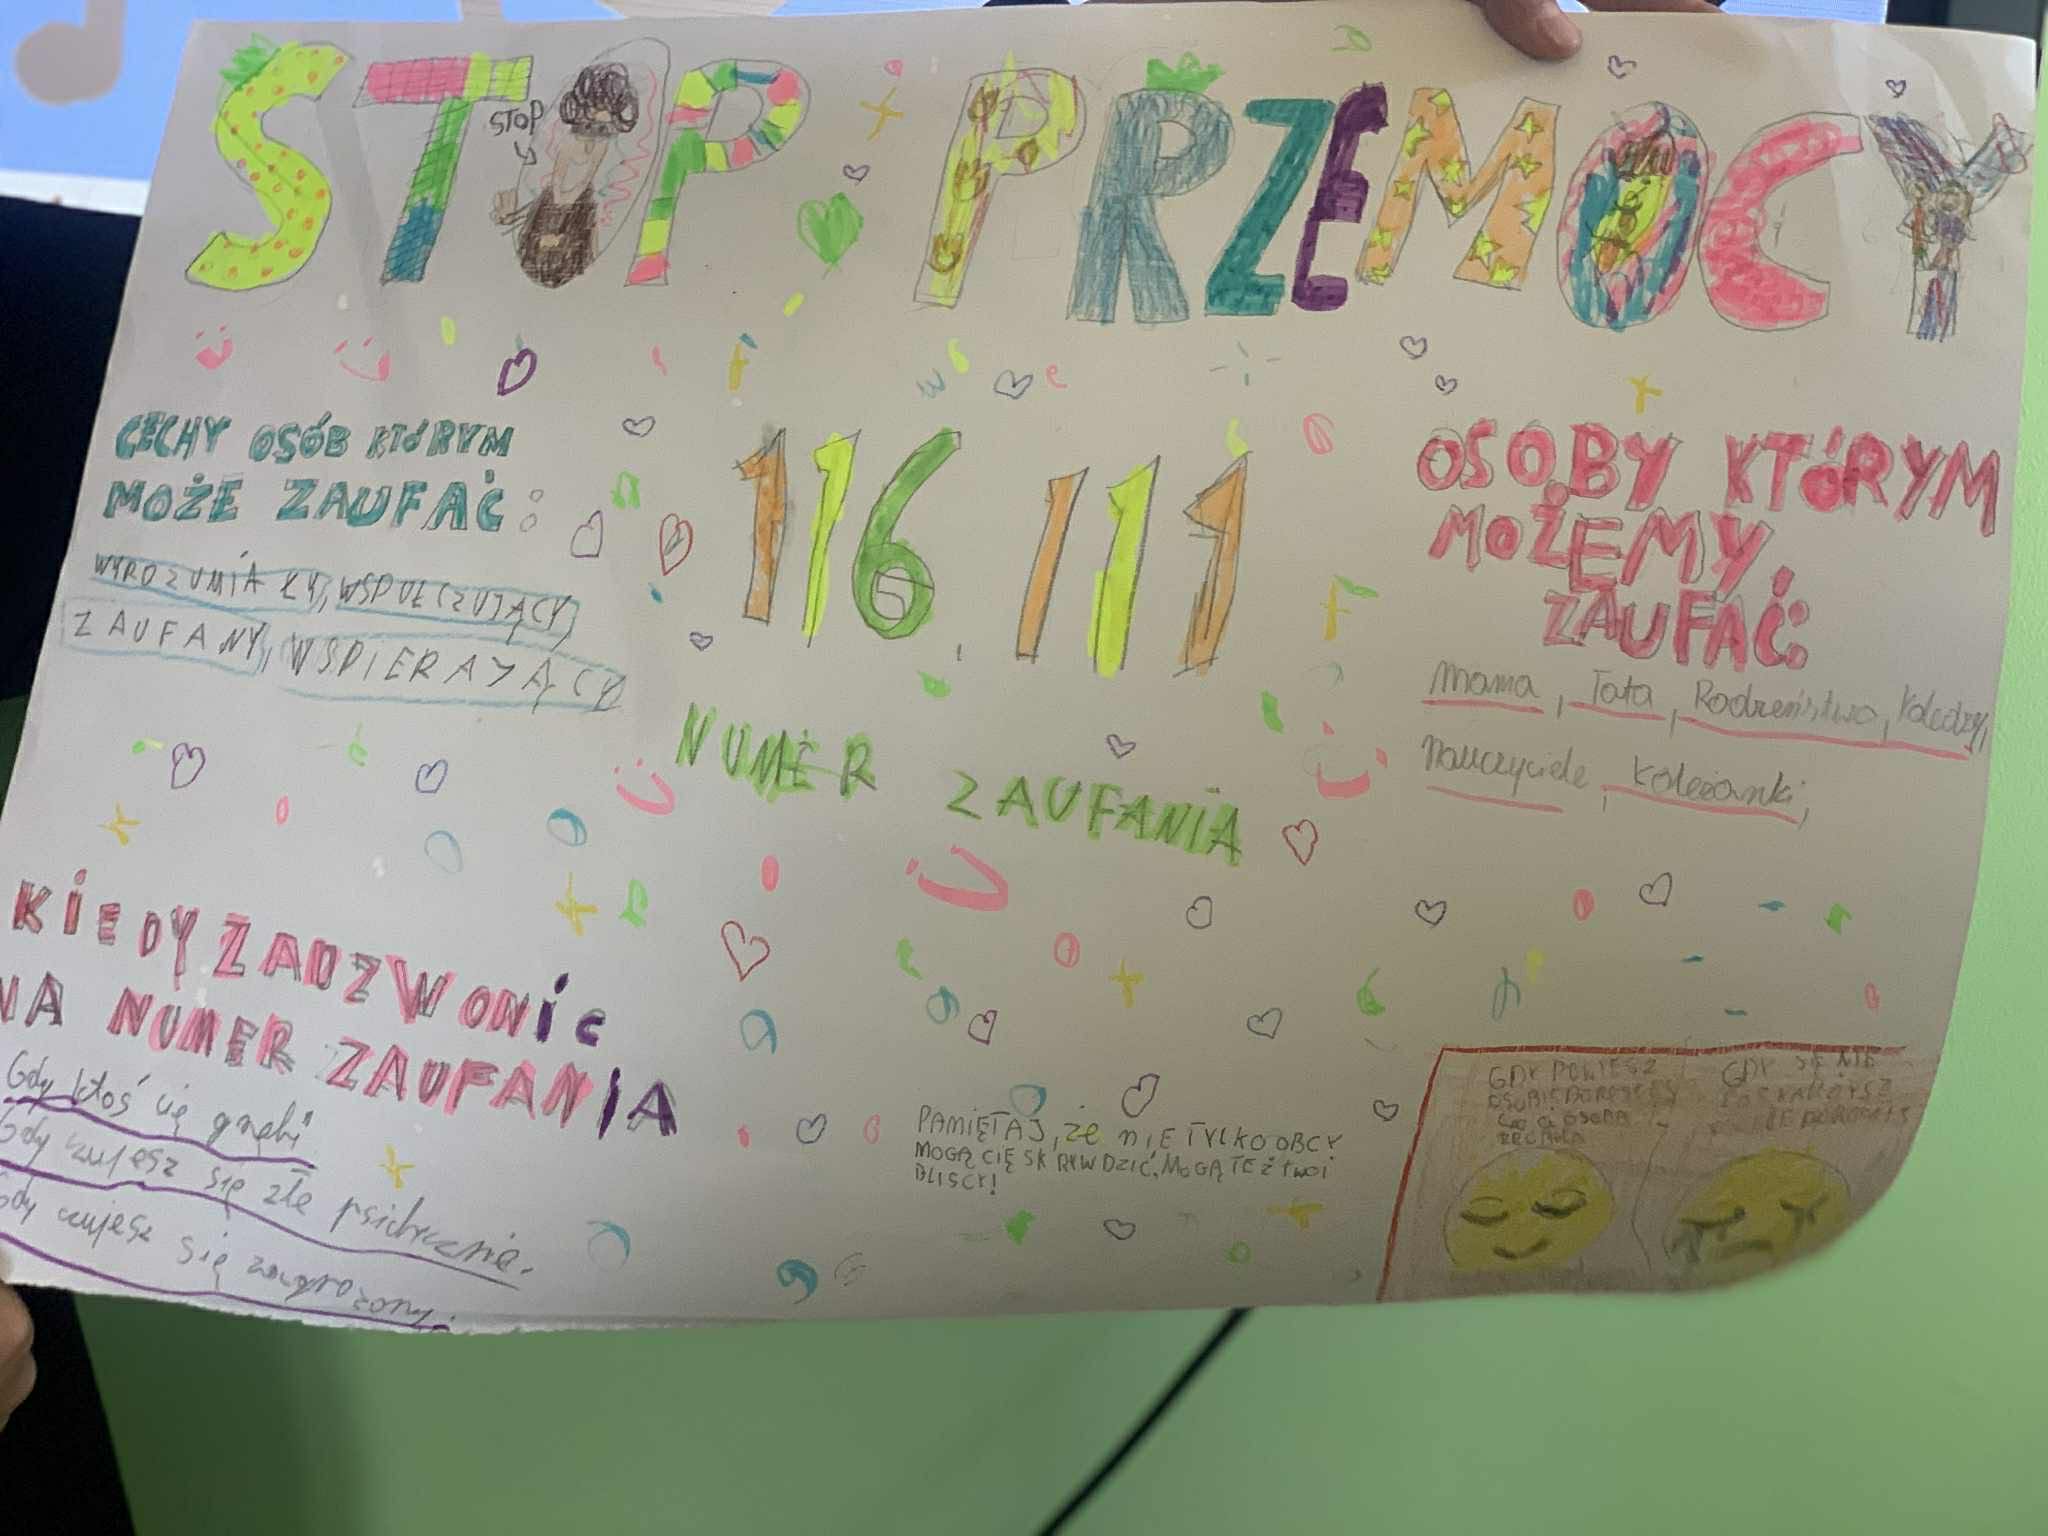 STOP PRZEMOCY
STOP
CECHY OSÓB KTÓRYM
MOŻE ZAUFAĆ:
WYROZUMIAŁY, WSPÓŁCZUJĄCY
ZAUFANY, WSPIERAJĄCY
116.111
NUMER ZAUFANIA
OSOBY KTÓRYM
MOŻEMY
ZAUFAĆ:
Mama, Tata, Rodzeństwo, Koledzy,
Nauczyciele, Koleżanki,
KIEDY ZADZWONIC
NA NUMER ZAUFANIA
Gdy ktoś cię gnębi
Gdy czujesz się źle psichicznie.
Gdy czujesz się zagrożony.
PAMIĘTAJ, że NIE TYLKO OBCY
MOGĄ CIĘ SKRYWDZIĆ, MOGĄ TEŻ twoi
BLISCY!
GDY POWIESZ
OSOBIE DOROSŁEJ
CO CI OSOBA
ZROBIŁA
GDY SĘ NIE